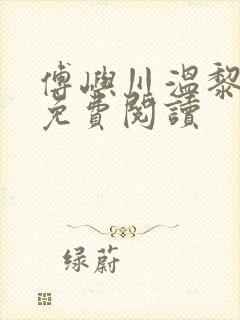 傅嶼川溫黎
免費閱讀
绿蔚